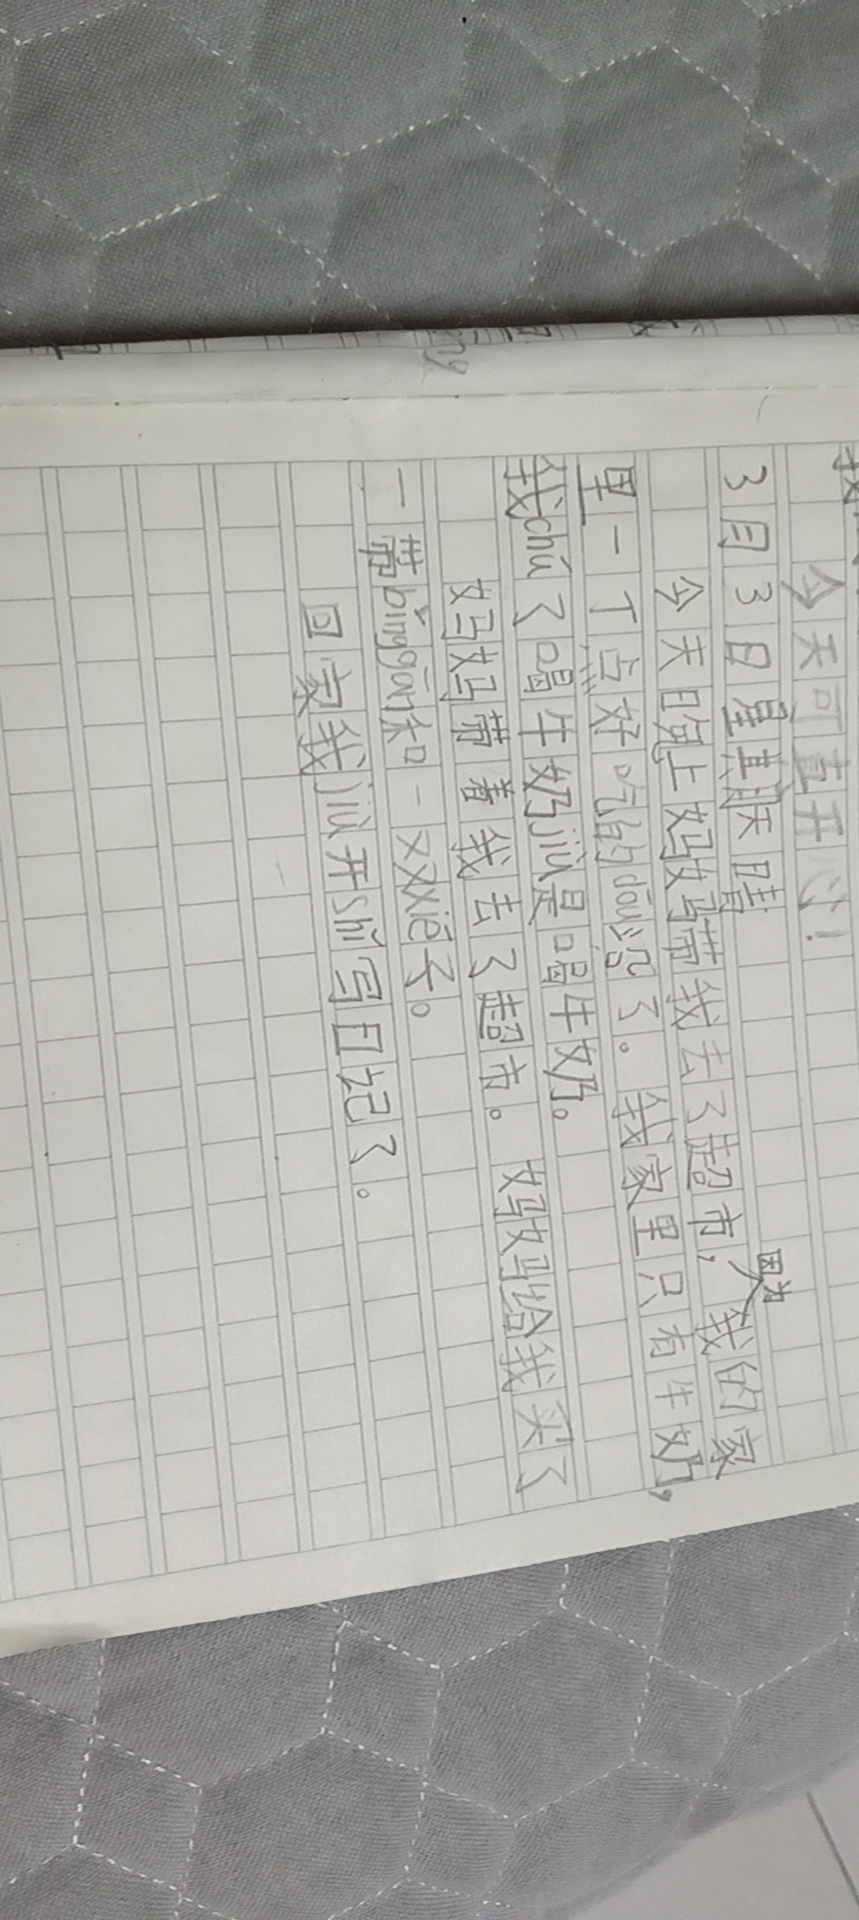 今天可真开心!
3月3日 星期天 晴
今天晚上妈妈带我去了超市,因为我的家
里一丁点好吃的dōu没了。我家里只有牛奶,
我chú了喝牛奶jiù是喝牛奶。
妈妈带着我去了超市。妈妈给我买了
一带bǐnggān和一双xié子。
回家我jiù开shǐ写日记了。